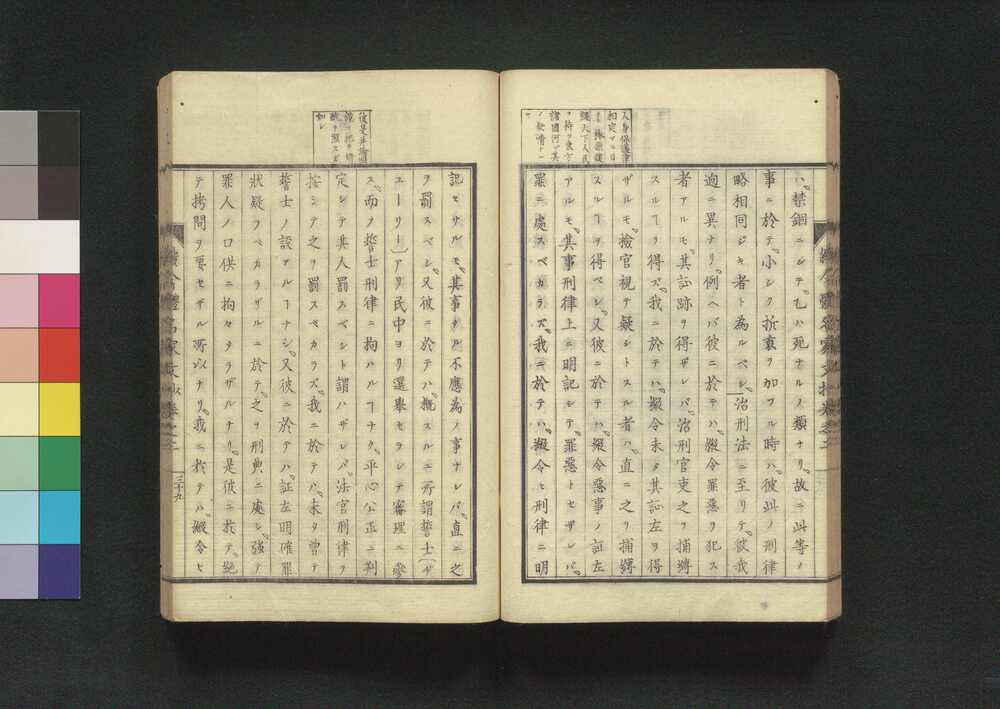 人身保護律
ハ禁錮ニシテ乇ハ死ナルノ類ナリ故ニ此等ノ
事ニ於テ小シク折衷ヲ加フル時ハ彼此ノ刑律
略相同ジキ者ト為ルベシ治刑法ニ至リテ彼我
逈ニ異ナリ例ヘバ彼ニ於テハ縦令罪悪ヲ犯ス
者アルモ其証跡ヲ得ザレバ治刑官吏之ヲ捕縛
スルヿヲ得ズ我ニ於テハ縦令未タ其証左ヲ得
ザルモ検官視テ疑シトスル者ハ直ニ之ヲ捕縛
スルヿヲ得ベシ又彼ニ於テハ縦令悪事ノ証左
アルモ其事刑律上ニ明記シテ罪悪トセザレバ
罪ニ處スベカラズ我ニ於テハ縦令ヒ刑律ニ明
記セサルモ其事タル不應為ノ事ナレバ直ニ之
ヲ罰スベシ又彼ニ於テハ概スルニ所謂誓士(ヂ
ユーリー)アリ民中ヨリ選挙セラレテ審理ニ參
ス而ノ誓士刑律ニ拘ハルヿナク平心公正ニ判
定シテ其人罰スベシト謂ハザレバ法官刑律ヲ
按シテ之ヲ罰スベカラズ我ニ於テハ未タ曽テ
誓士ノ設アルヿナシ又彼ニ於テハ証左明確罪
狀疑フベカラザルニ於テ之ヲ刑典ニ處シ強テ
罪人ノ口供ニ拘々タラザルナリ是彼ニ於テ絶
テ拷問ヲ要セザル所以ナリ我ニ於テハ縦令ヒ
三十九